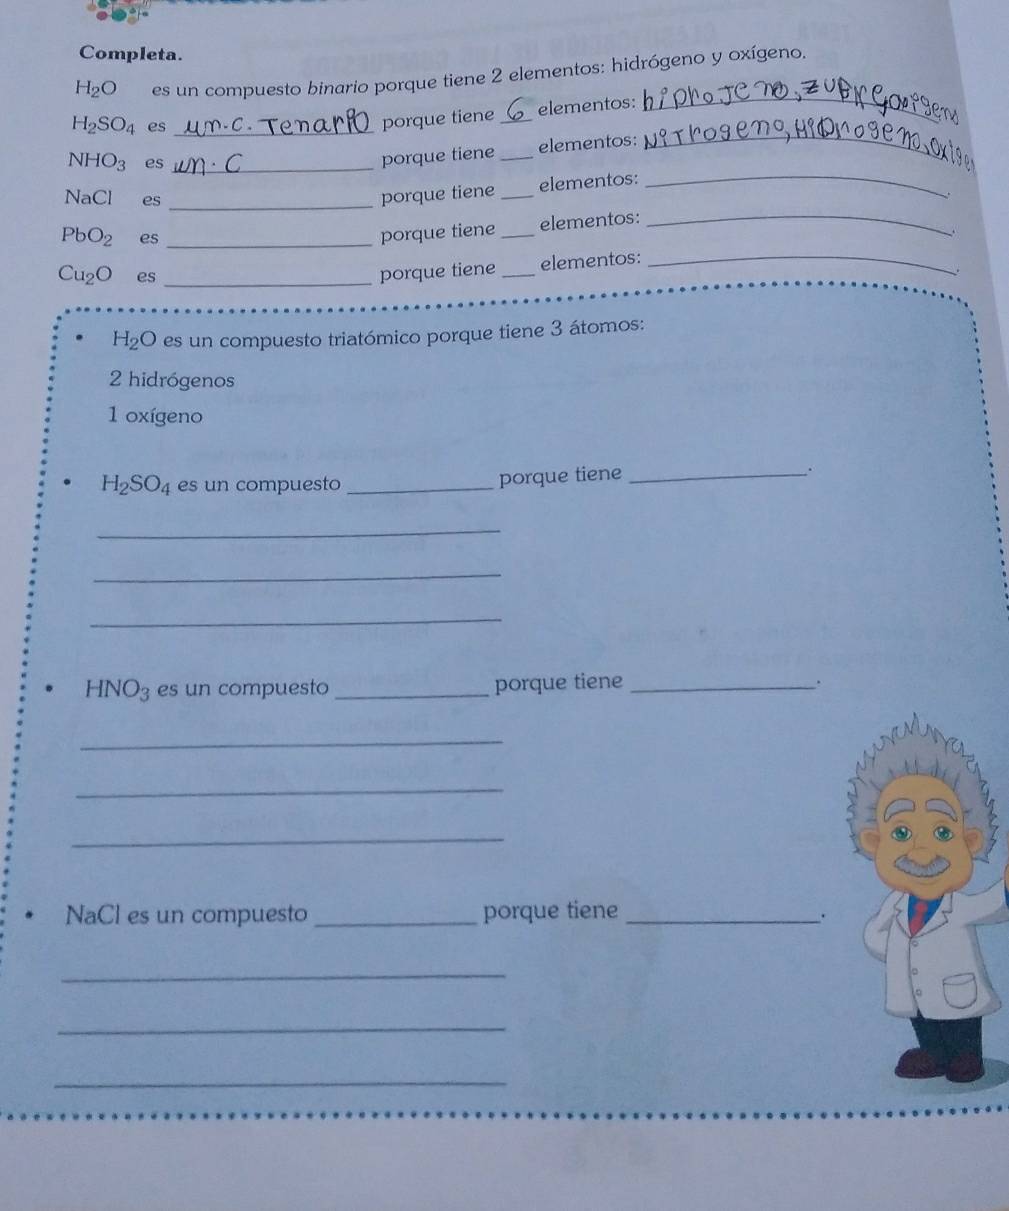 Completa.
H₂O es un compuesto binario porque tiene 2 elementos: hidrógeno y oxígeno.
H₂SO₄ es un.c. Tenario porque tiene 6 elementos:
NHO₃ es un.C porque tiene ____ elementos: NiTrogeno, HiDrogeno, oxige
NaCl es ____ porque tiene ____ elementos: ____.
PbO₂ es ____ porque tiene ____ elementos: ____.
Cu₂O es ____ porque tiene ____ elementos: ____.
• H₂O es un compuesto triatómico porque tiene 3 átomos:
2 hidrógenos
1 oxígeno
• H₂SO₄ es un compuesto ____ porque tiene ____.
• HNO₃ es un compuesto ____ porque tiene ____.
• NaCl es un compuesto ____ porque tiene ____.